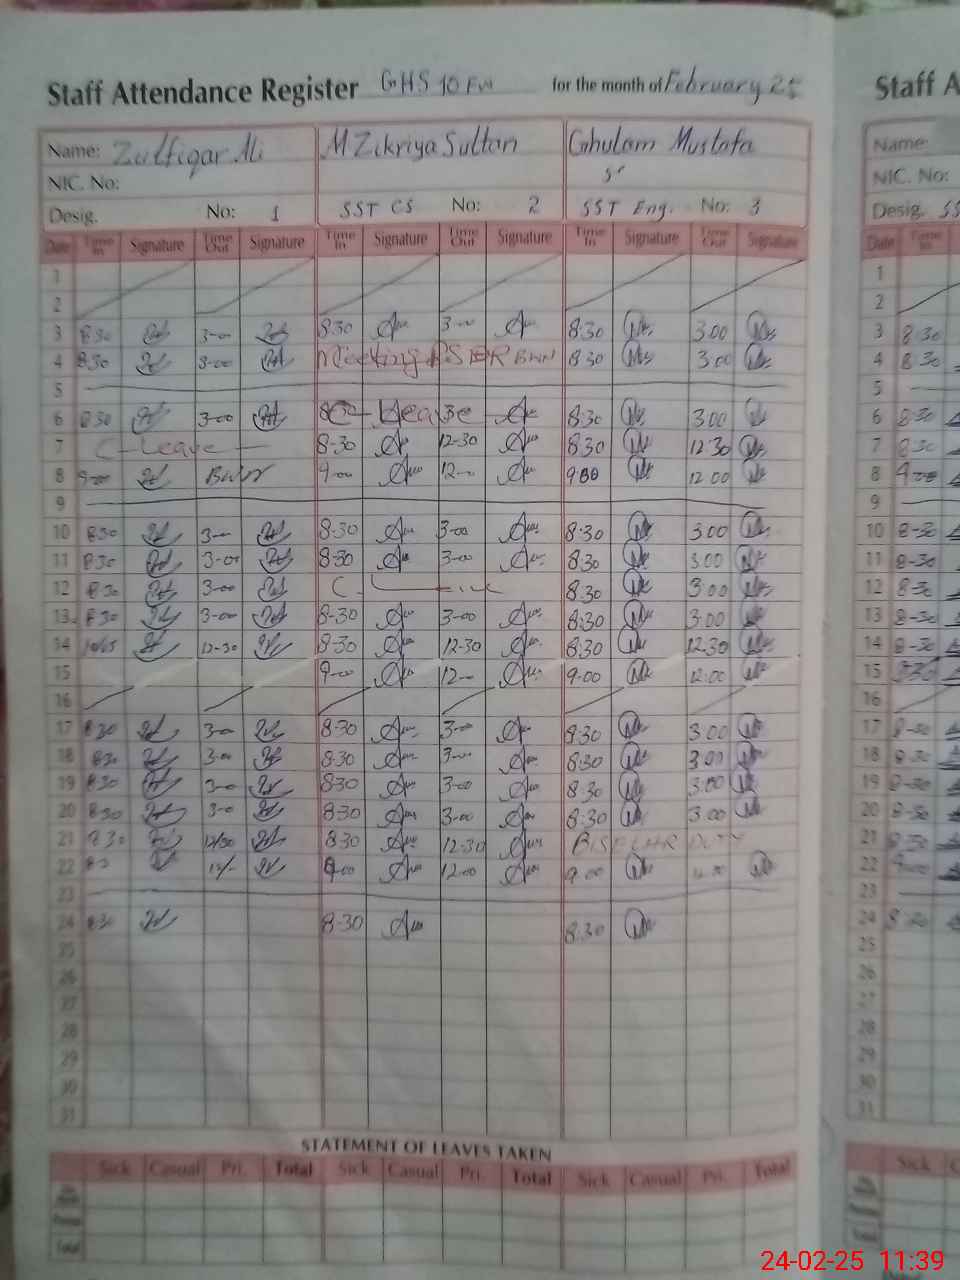 Staff Attendance Register GHS 10 FW for the month of February 25
Name: Zulfiqar Ali M Zikriya Sultan Ghulam Mustafa
NIC. No:
Desig. No: 1 SST CS No: 2 SST Eng. No: 3
Date Time In Signature Time Out Signature Time In Signature Time Out Signature Time In Signature Time Out Signature
1
2
3 8:30 3-00 8:30 3-00 8:30 3.00
4 8:30 3-00 Meeting BWN 8:30 3.00
5
6 8:30 3-00 C- Leave 8:30 3.00
7 C-Leave 8-30 12-30 8:30 12:30
8 9-00 BWN 9-00 12-00 9 00 12 00
9
10 8:30 3-00 8-30 3-00 8:30 3.00
11 8:30 3-00 8-30 3-00 8:30 3.00
12 8:30 3-00 C Leave 8:30 3.00
13 8:30 3-00 8-30 3-00 8:30 3.00
14 12-30 8-30 12-30 8:30 12.30
15 9-00 12-00 9-00 12:00
16
17 8:30 3-0 8-30 3-00 8:30 3.00
18 8:30 3-00 8:30 3-00 8:30 3.00
19 8:30 3-0 8:30 3-00 8:30 3.00
20 8:30 3-0 8:30 3-00 8:30 3.00
21 8:30 12/30 8:30 12-30 BISE LHR DUTY
22 9-00 12-00 9.00
23
24 8:30 8-30 8:30
25
26
27
28
29
30
31
STATEMENT OF LEAVES TAKEN
Sick Casual Pri. Total Sick Casual Pri. Total Sick Casual Pri. Total
Total
Staff A
Name:
NIC. No:
Desig.
Date Time In
1
2
3 8:30
4 8:30
5
6 8:30
7 8:30
8 9-00
9
10 8-30
11 8-30
12 8:30
13 8-30
14 8-30
15
16
17 8-30
18 8-30
19 8-30
20 8-30
21 8-30
22 9-00
23
24
25
26
27
28
29
30
31
Sick
Total
24-02-25 11:39